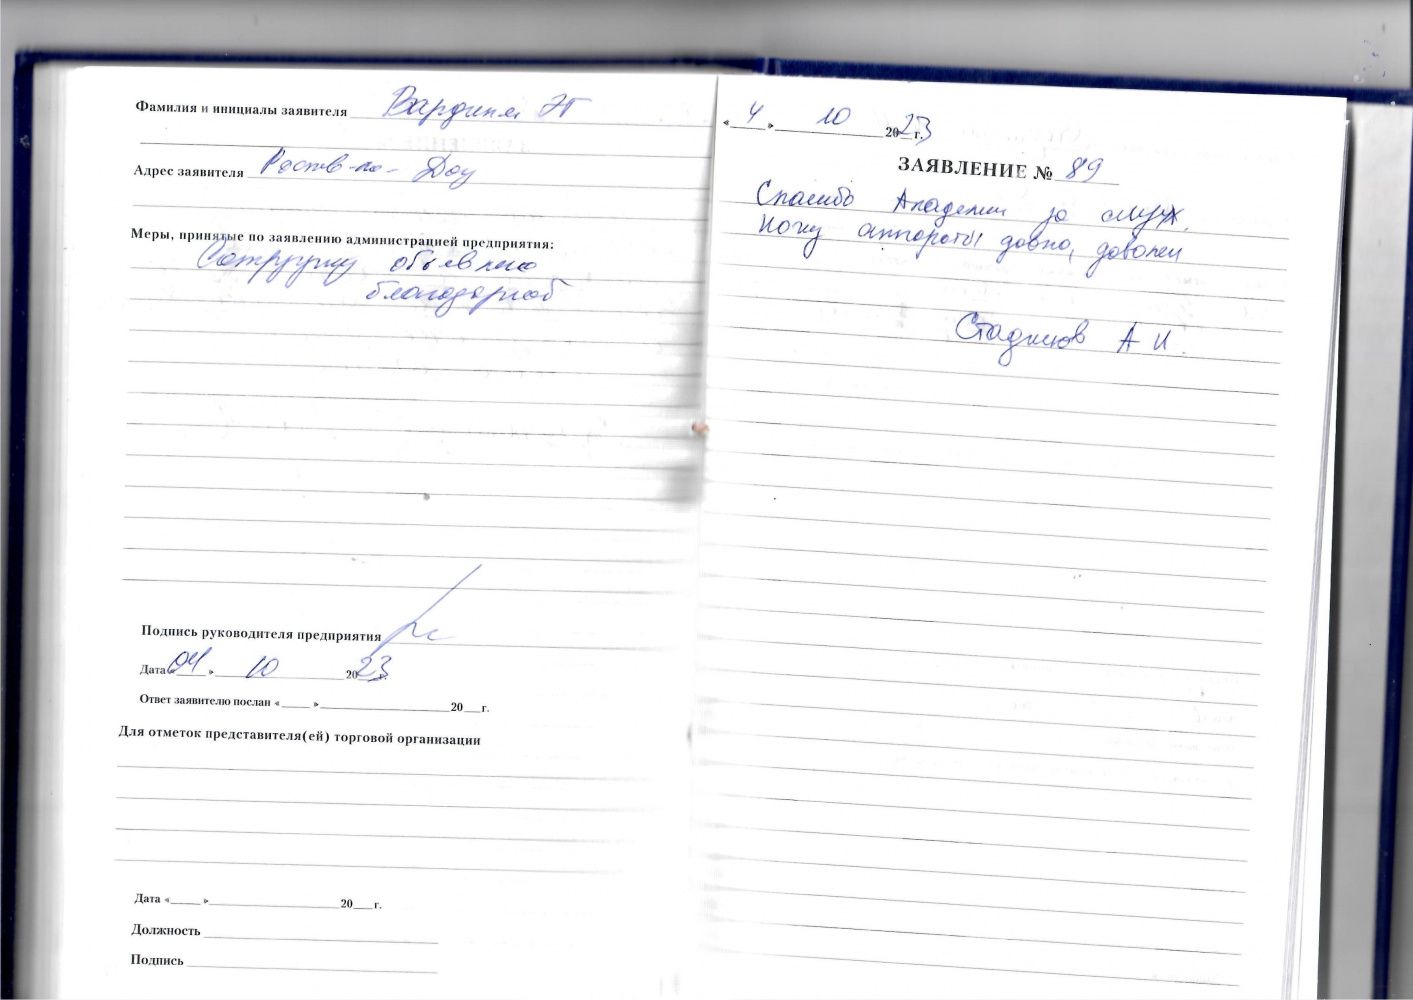 Фамилия и инициалы заявителя
Адрес заявителя Ростов-на-Дону
Меры, принятые по заявлению администрацией предприятия:
Сотруднику объявлена
благодарность
Подпись руководителя предприятия
Дата «04» 10 2023 г.
Ответ заявителю послан «___» ______ 20__г.
Для отметок представителя(ей) торговой организации
Дата «___» ______ 20__г.
Должность
Подпись
«4» 10 2023 г.
ЗАЯВЛЕНИЕ № 89
Спасибо Академии за слух.
Ношу аппараты давно, доволен
А И.